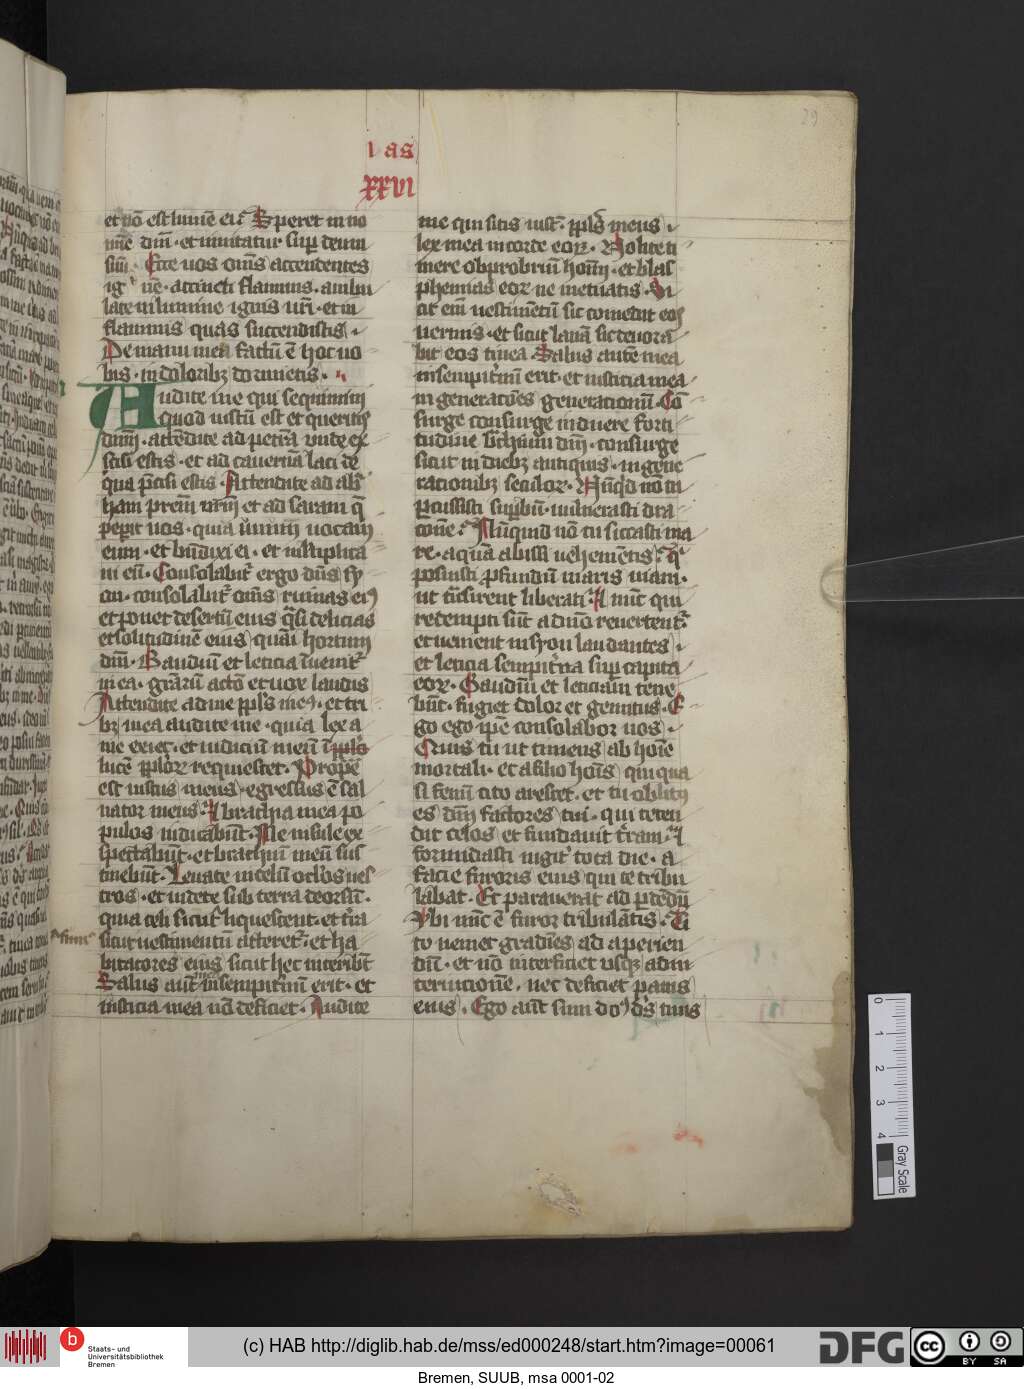 29
ias
XXVI
et nō est lumē ei. Speret in no
mīe dn̄i · et innitatur sup deum
suū · Ecce uos om̄s accendentes
igne · accincti flammis · ambu
late in lumine ignis ur̄i · et in
flammis quas succendistis ·
De manu mea factū ē hoc uo
bis · in doloribꝫ dormietis ·
Audite me qui sequimini
quod iustū est et queritis
dn̄m · attēdite ad petrā unde ex
cisi estis · et ad cauernā laci de
qua p̄cisi estis · Attendite ad ab̄
ham prem̄ ur̄m et ad saram q̄
peperit uos · quia unum uocaui
eum · et bn̄dixi ei · et multiplica
ui eū · Consolabit ergo dn̄s sy
on · consolabit om̄s ruinas eiꝰ
et ponet desertū eius q̄si delicias
et solitudinē eius quasi hortum
dn̄i · Gaudiū et leticia īueniet
in ea · gr̄arū actō et uox laudis
Attendite ad me ppl̄s meꝰ · et tri
bꝫ mea audite me · quia lex a
me exiet · et iudiciū meū ī ppl̄o
lucē pplōꝝ requiescet · Prope ē
est iustus meus · egressus ē sal
uator meus · Et brachia mea po
pulos iudicabūt · Me insule ex
spectabūt · et brachiū meū sus
tinebūt · Leuate in celū ocl̄os ues
tros · et uidete sub terra deorsū ·
quia celi sicut liquescent · et t̄ra
sicut uestimentū atteret · et ha
sicut fumꝰ
bitatores eius sicut hec interibūt
Salus aūt mea in sempit̄nū erit · et
iusticia mea nō deficiet · Audite
me qui scitis iustū · ppl̄s meus ·
lex mea in corde eoꝝ · Nolite ti
mere obprobriū hoīm · et blas
phemias eoꝝ ne metuatis · Si
cut em̄ uestimētū sic comedet eos
uermis · et sicut lanā sic deuora
bit eos tinea · Salus autē mea
in sempit̄nū erit · et iusticia mea
in generatōes generationū · Cō
surge consurge induere forti
tudine brachiū dn̄i · consurge
sicut in diebꝫ antiquis · in gene
rationibꝫ seculoꝝ · Nūqd nō tu
p̄cussisti supbū · uulnerasti dra
conē · Nūnquid nō tu siccasti ma
re · aquā abissi uehemētis · q̄
posuisti pfundū maris uiam ·
ut tn̄sirent liberati · Et nunc qui
redempti sūt a dn̄o reuertent
et uenient in syon laudantes ·
et leticia sempit̄na sup capita
eoꝝ · Gaudiū et leticiam tene
būt · fugiet dolor et gemitus · E
go ego ipē consolabor uos ·
Quis tu ut timeas ab hoīe
mortali · et a filio hoīs qui qua
si fenū cito arescet · et tu oblitꝰ
es dn̄i factores tui · qui teten
dit celos et fundauit t̄ram · Et
formidasti iugit tota die · a
facie furoris eius qui te tribu
labat · Et parauerat ad p̄dēdū
Vbi nūc ē furor tribulātis · Ci
to ueniet gradiēs ad aperien
dū · et nō interficiet usqꝫ ad in
ternicionē · nec deficiet panis
eius · Ego aūt sum dō dn̄s tuus
0 1 2 3 4
Gray Scale
b
Staats- und
Universitätsbibliothek
Bremen
(c) HAB http://diglib.hab.de/mss/ed000248/start.htm?image=00061
DFG
cc
BY SA
Bremen, SUUB, msa 0001-02